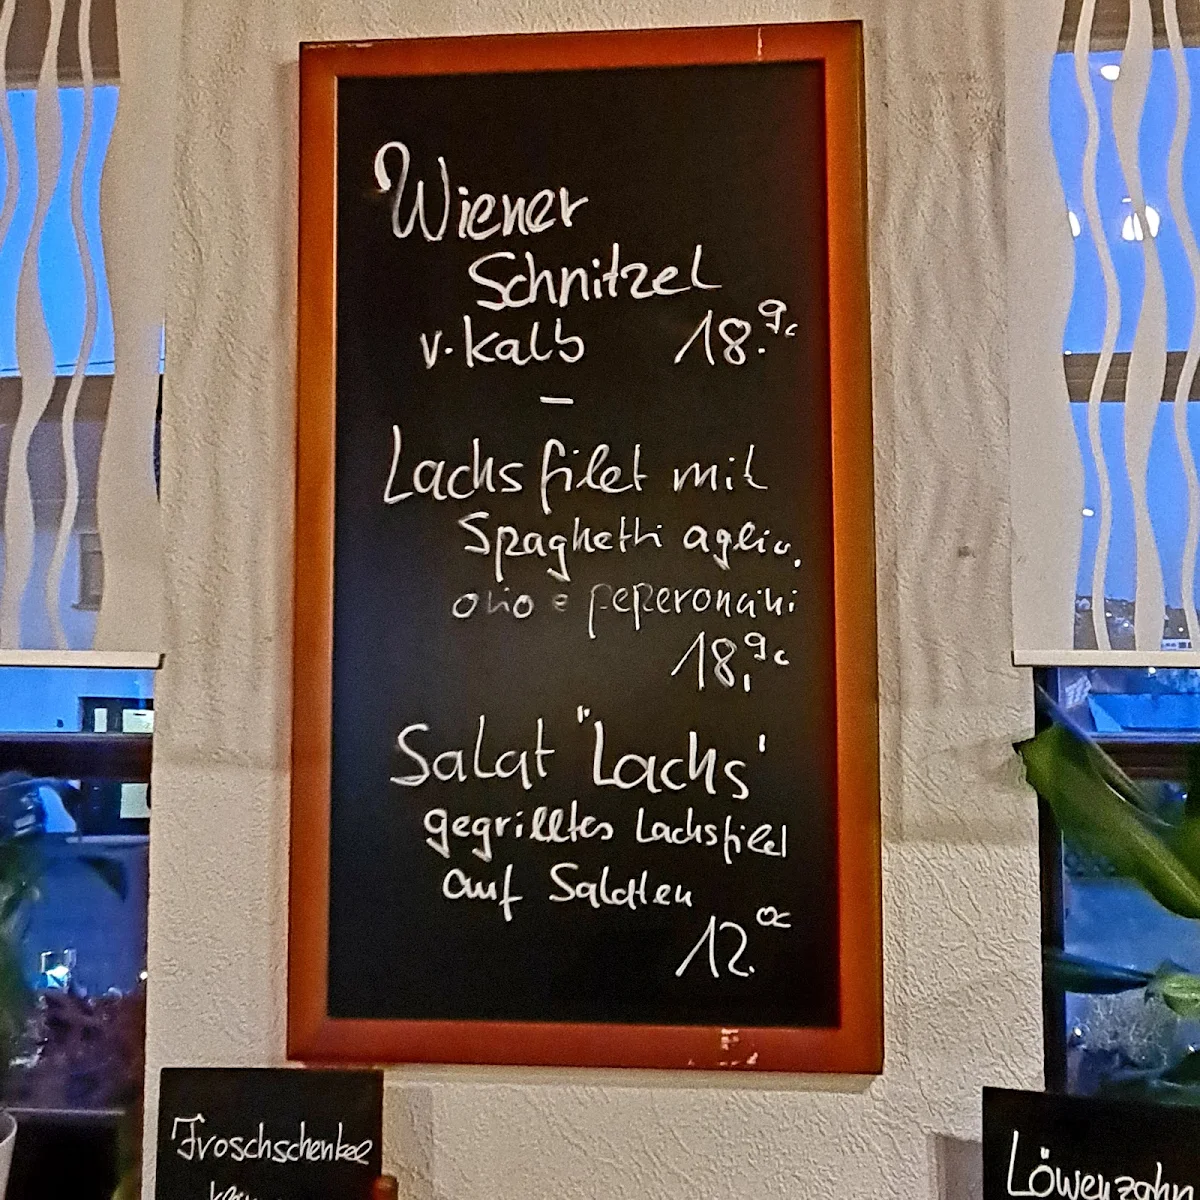 Wiener
Schnitzel
v. Kalb 18.90
–
Lachsfilet mit
Spaghetti aglio,
olio e peperoncini
18,90
Salat "Lachs"
gegrilltes Lachsfilet
auf Salaten
12.00
Froschschenkel
Löwenzahn